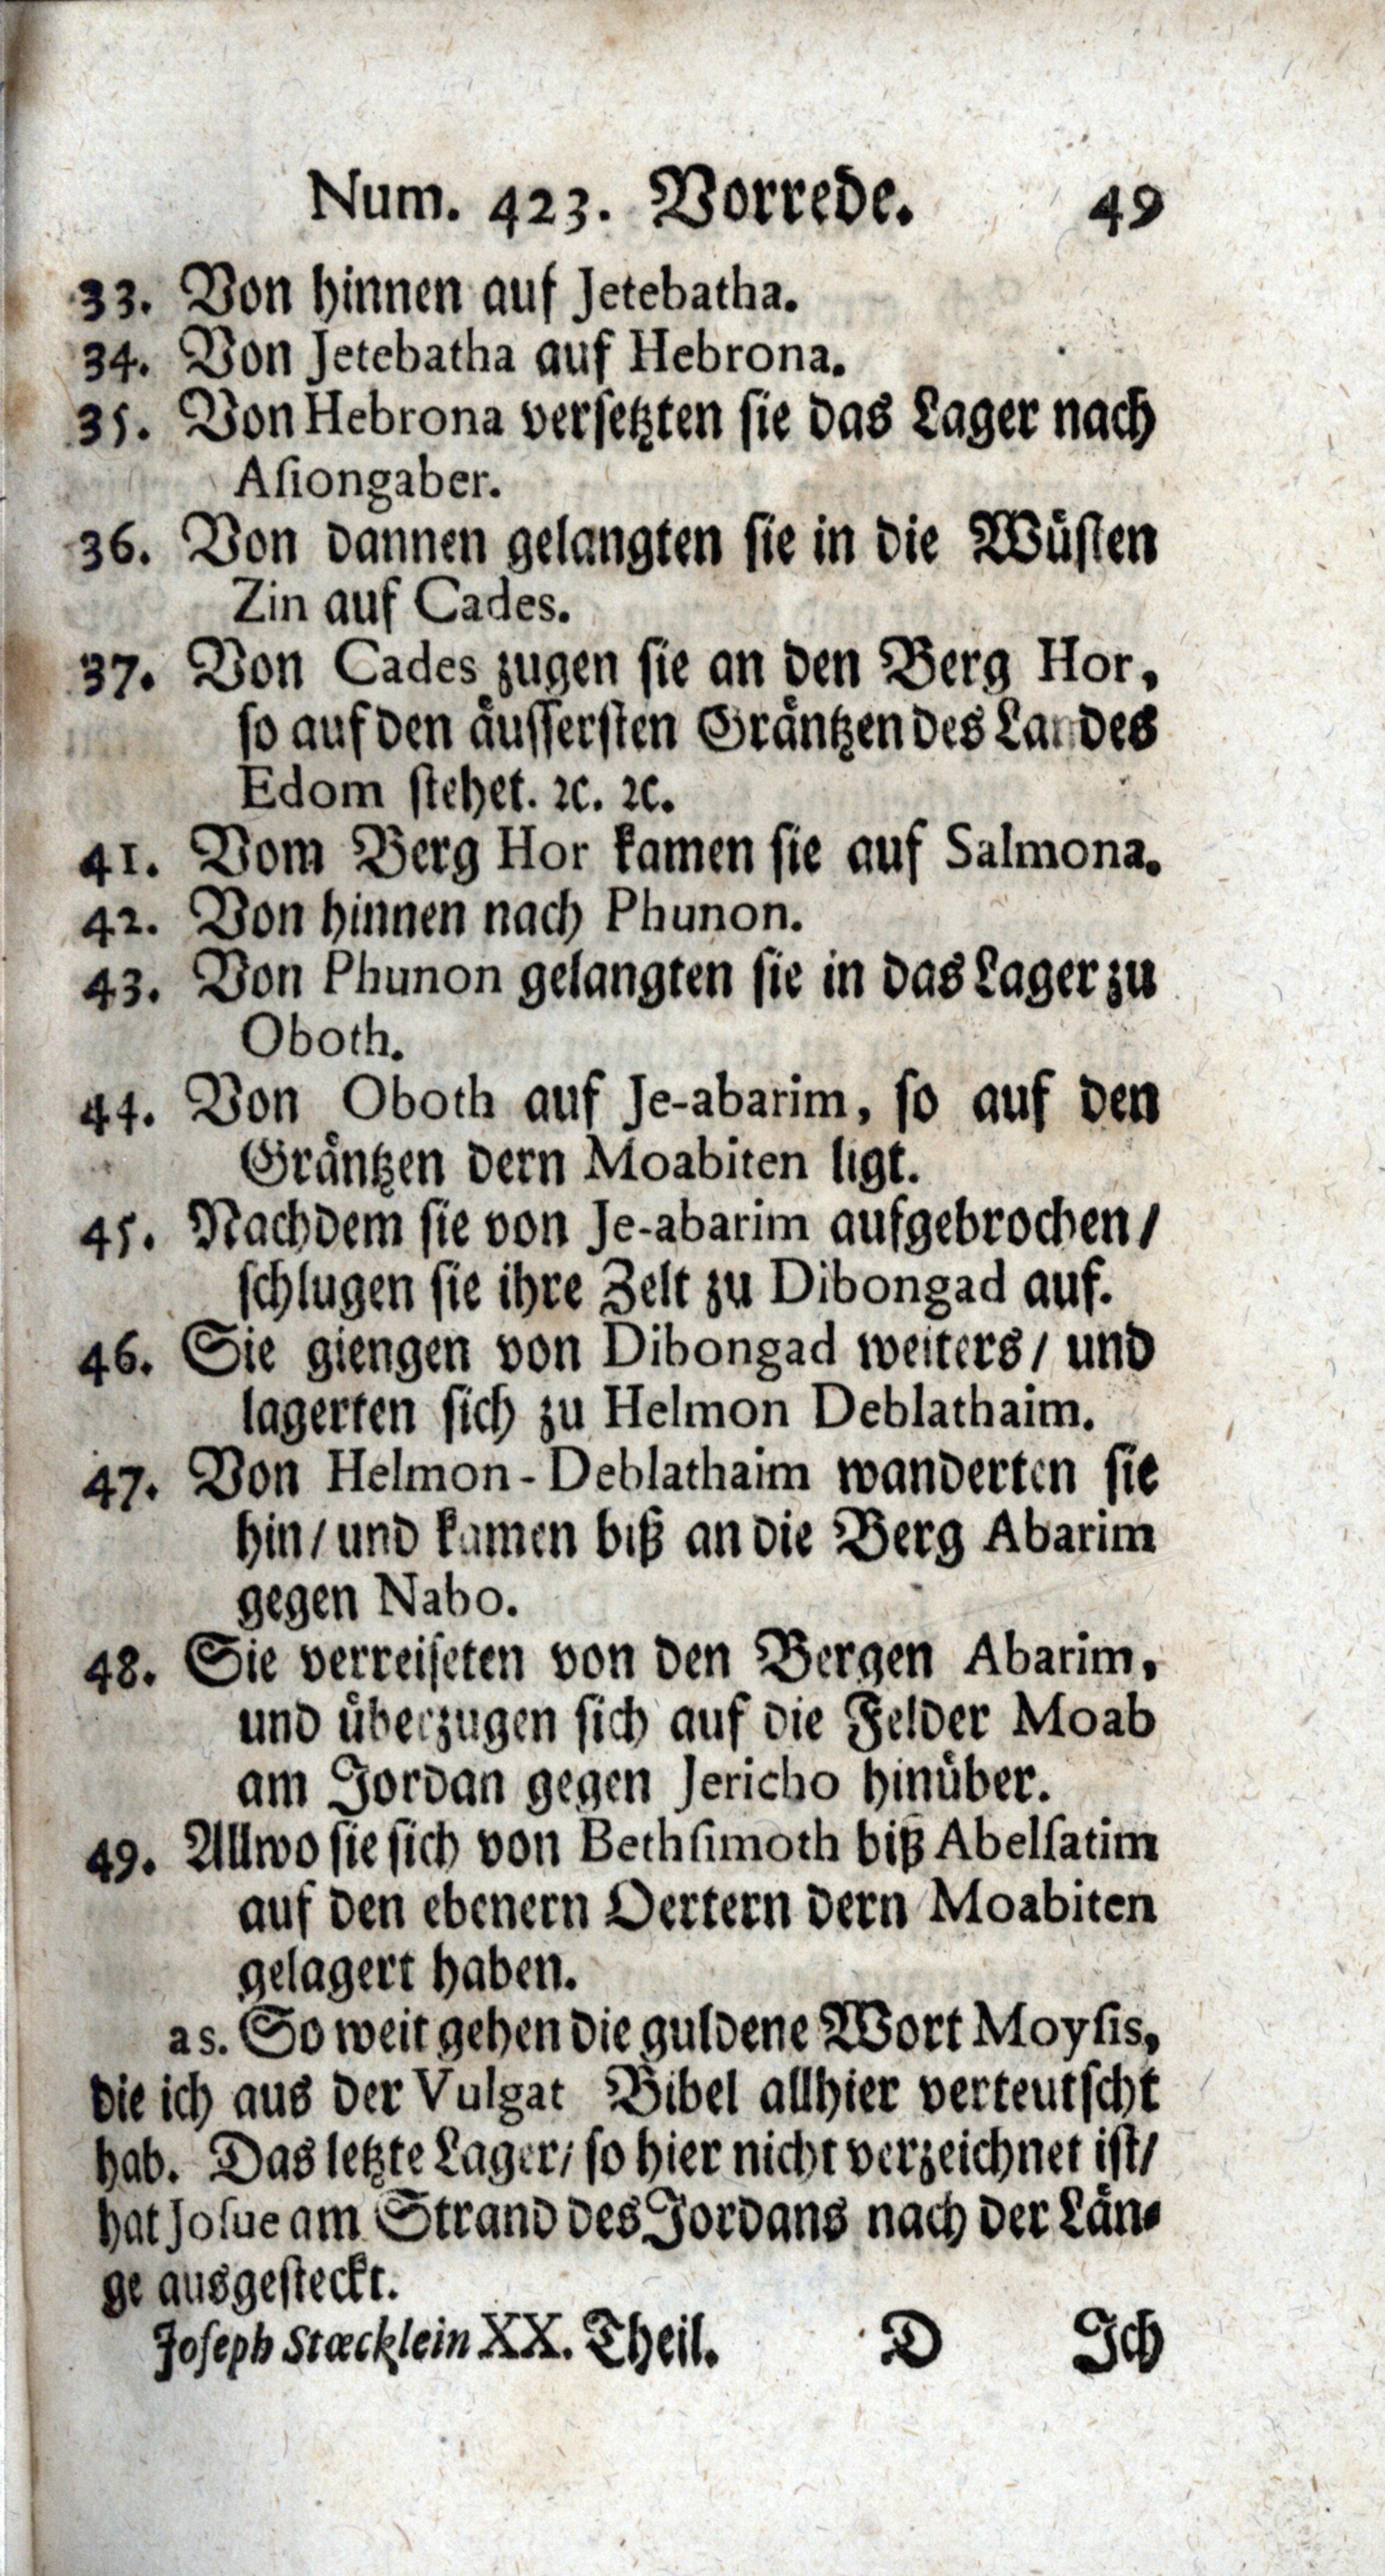 Num. 423. Vorrede. 49
33. Von hinnen auf Jetebatha.
34. Von Jetebatha auf Hebrona.
35. Von Hebrona versetzten sie das Lager nach
Asiongaber.
36. Von dannen gelangten sie in die Wüsten
Zin auf Cades.
37. Von Cades zugen sie an den Berg Hor,
so auf den äussersten Gräntzen des Landes
Edom stehet. ꝛc. ꝛc.
41. Vom Berg Hor kamen sie auf Salmona.
42. Von hinnen nach Phunon.
43. Von Phunon gelangten sie in das Lager zu
Oboth.
44. Von Oboth auf Je-abarim, so auf den
Gräntzen dern Moabiten ligt.
45. Nachdem sie von Je-abarim aufgebrochen/
schlugen sie ihre Zelt zu Dibongad auf.
46. Sie giengen von Dibongad weiters/ und
lagerten sich zu Helmon Deblathaim.
47. Von Helmon-Deblathaim wanderten sie
hin/ und kamen biß an die Berg Abarim
gegen Nabo.
48. Sie verreiseten von den Bergen Abarim,
und überzugen sich auf die Felder Moab
am Jordan gegen Jericho hinüber.
49. Allwo sie sich von Bethsimoth biß Abelsatim
auf den ebenern Oertern dern Moabiten
gelagert haben.
as. So weit gehen die guldene Wort Moysis,
die ich aus der Vulgat Bibel allhier verteutscht
hab. Das letzte Lager/ so hier nicht verzeichnet ist/
hat Josue am Strand des Jordans nach der Län-
ge ausgesteckt.
Joseph Stœcklein XX. Theil. D Ich